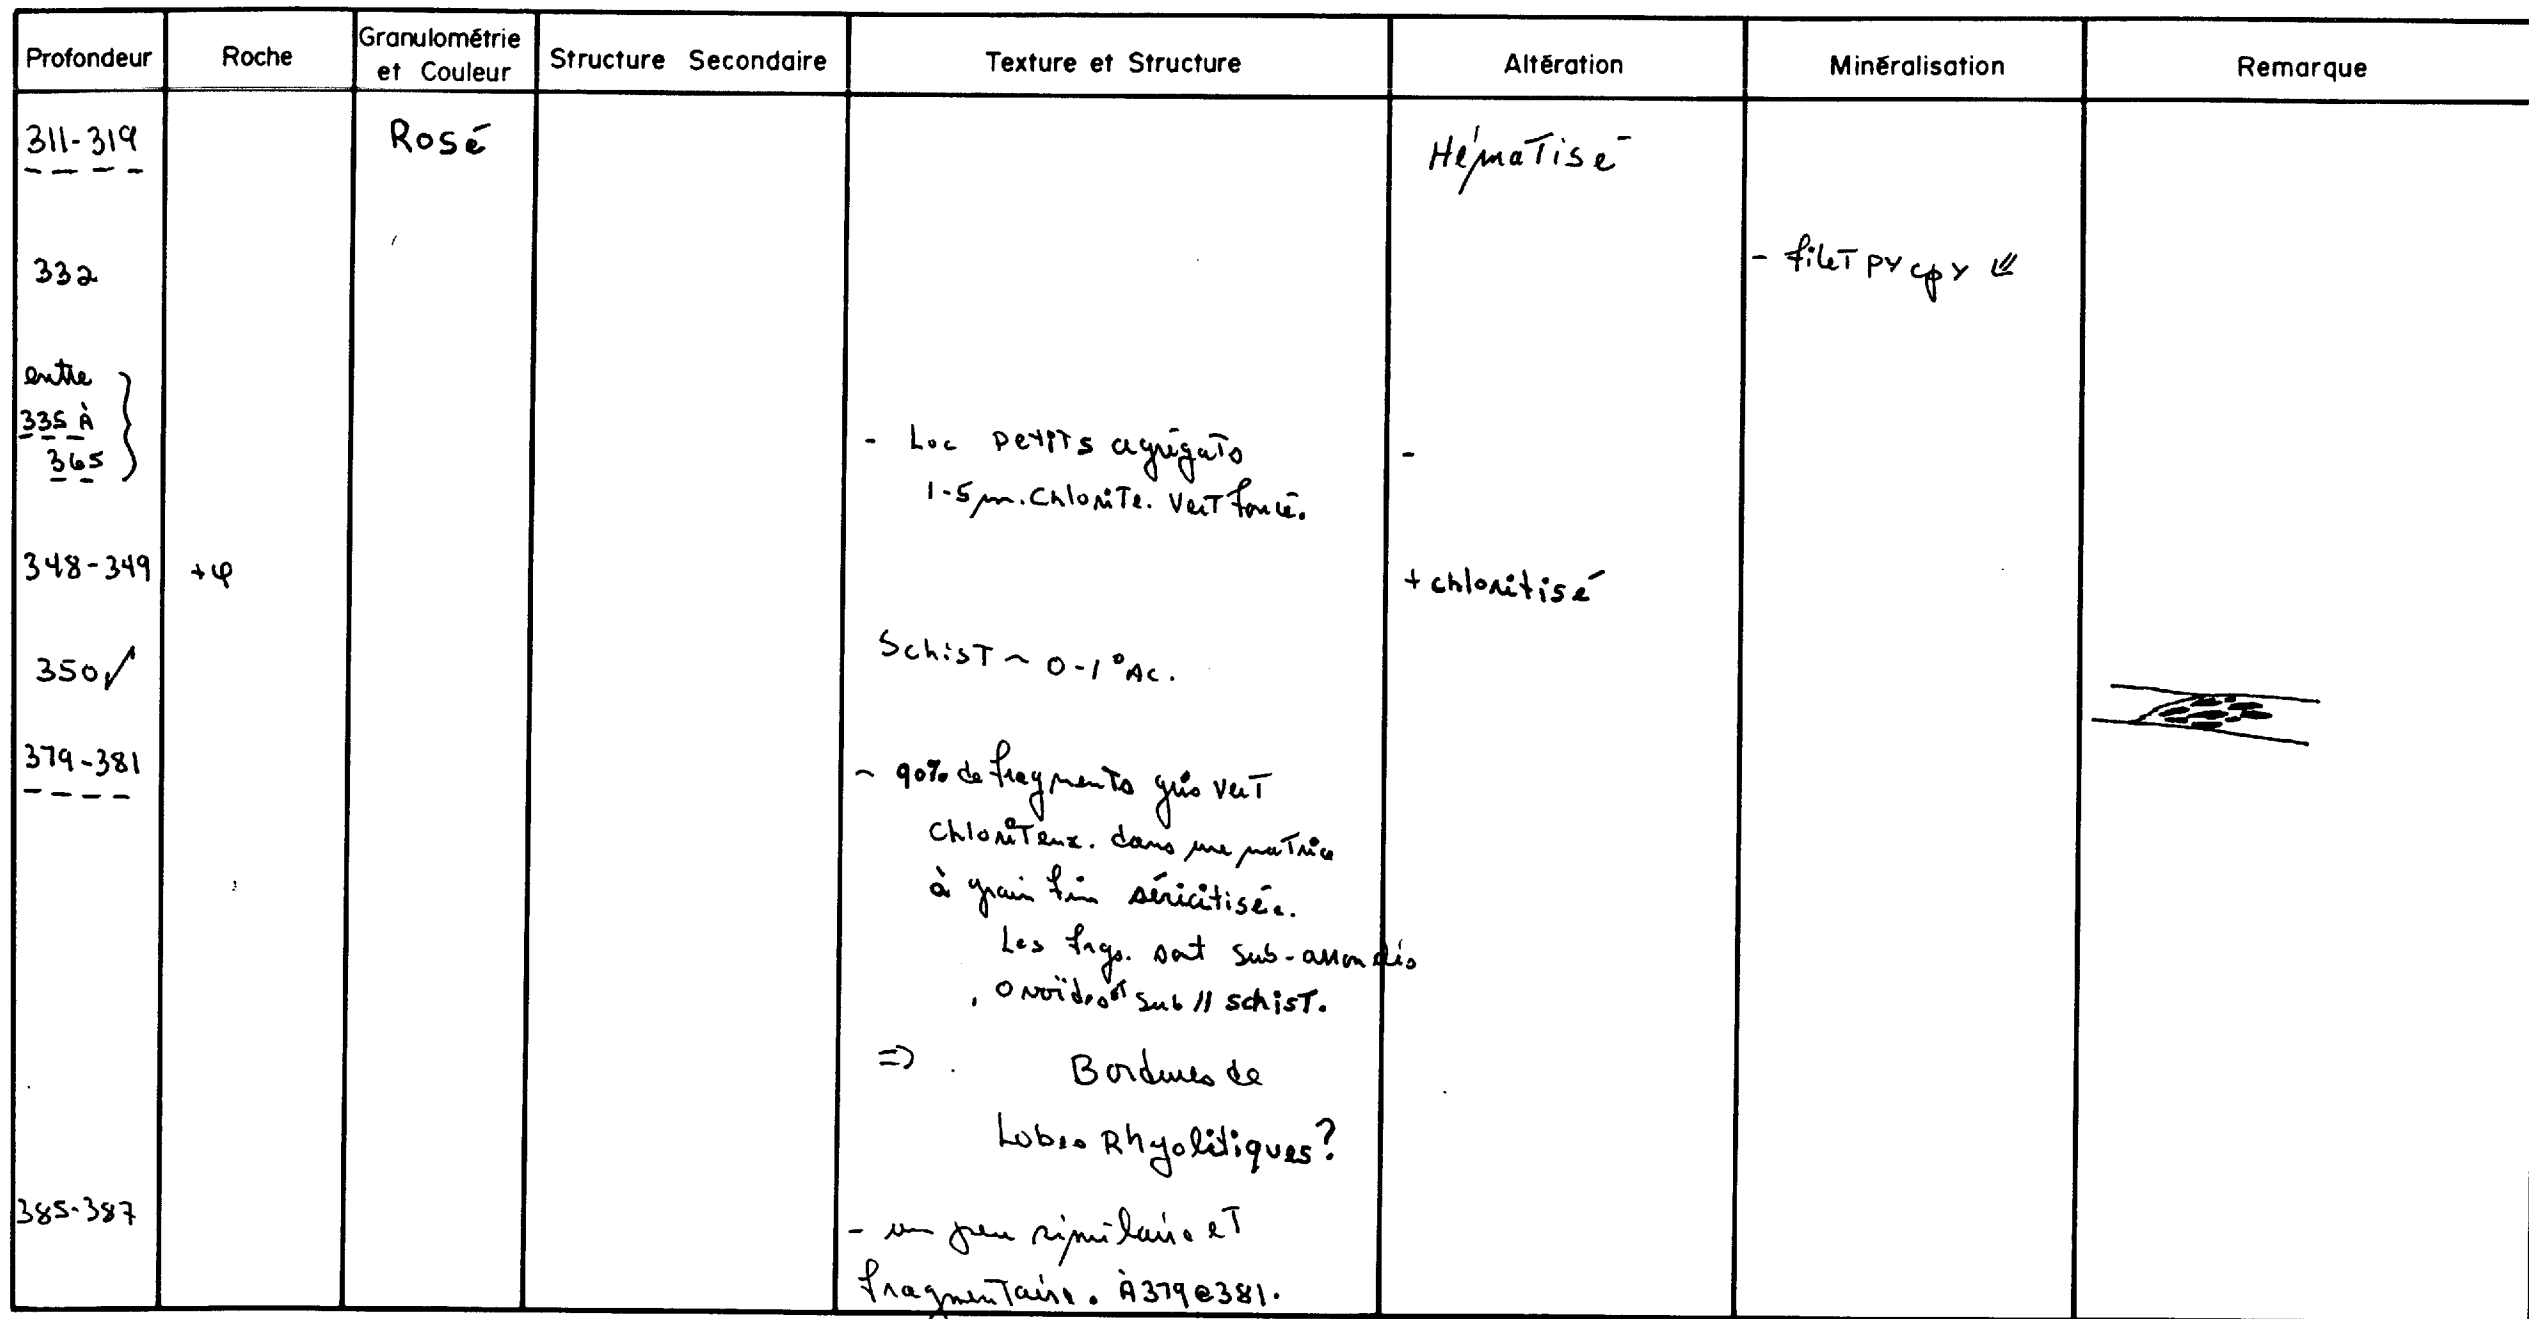 Profondeur Roche Granulométrie et Couleur Structure Secondaire Texture et Structure Altération Minéralisation Remarque
311-319 Rosé Hématisé
332 - filet py cpy
entre
335 À
365
- Loc petits agrégats -
1-5 mm. Chlorite. Vert foncé.
348-349 +φ + chloritisé
350 Schist ~ 0-1° Ac.
379-381 ~ 90% de fragments gris vert
chloriteux. dans une matrice
à grain fin séricitisée.
Les frgs. sont sub-arrondis
, ovoïdes et sub // schist.
=> Bordures de
Lobes Rhyolitiques?
385-387 - un peu similaire et
fragmentaire. À 379@381.